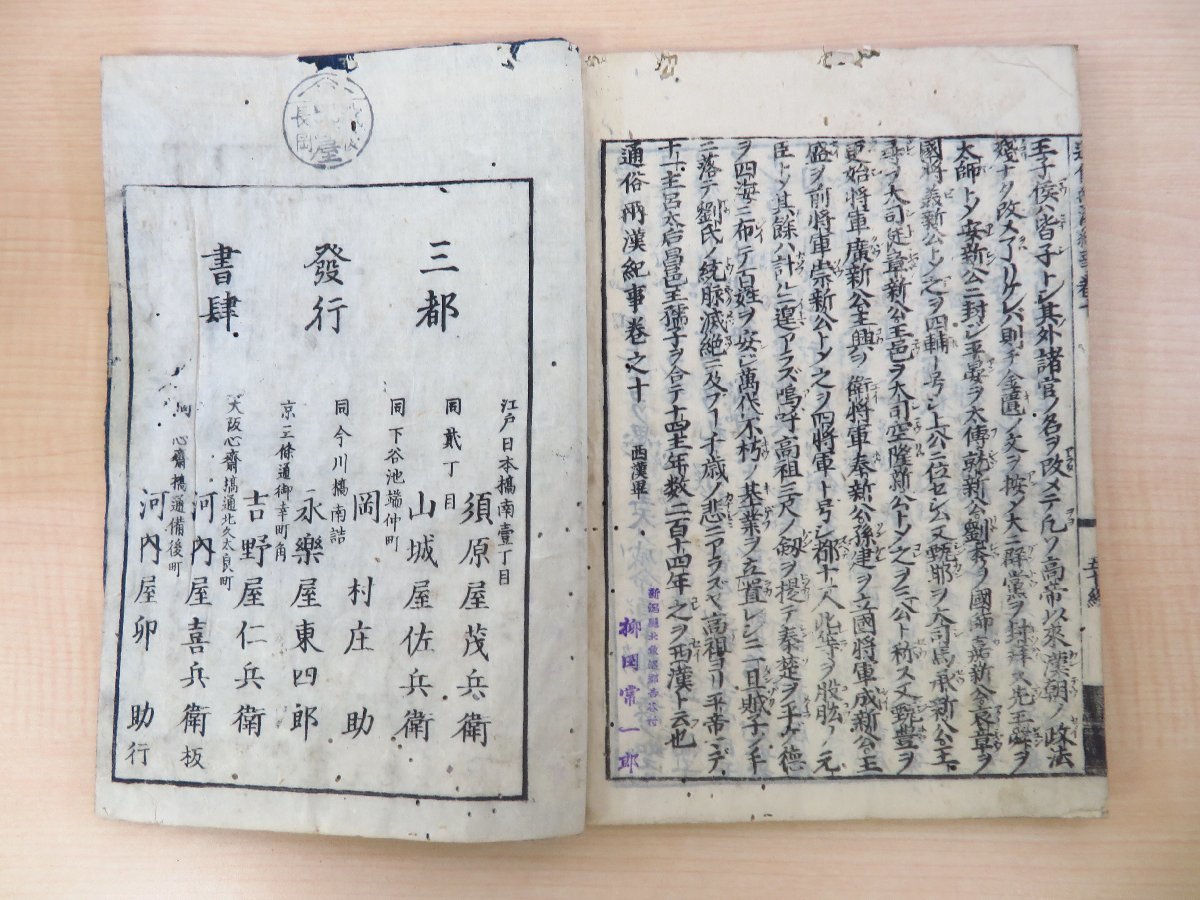 王子侯ハ皆子トシ其外諸官ノ名ヲ改メテ凡ソ高帝以來漢朝ノ政法
殘ナク改メ了リケレハ則チ金匱ノ文ヲ按シ大ニ群黨ヲ封拜ス先王舜ヲ
太師トシ安新公ニ封シ平晏ヲ太傅就新公劉秀ヲ國師嘉新公哀章ヲ
國將義新公トシ之ヲ四輔ト号シ上公ニ位セシム又甄邯ヲ大司馬承新公王
尋ヲ大司徒章新公王邑ヲ大司空隆新公トシ之ヲ三公ト称ス又甄豊ヲ
更始將軍廣新公王興ヲ衛將軍奉新公孫建ヲ立國將軍成新公王
盛ヲ前將軍崇新公トシ之ヲ四將軍ト号シ都十一人此等ヲ股肱ノ元
臣トシ其餘ハ計ルニ遑アラズ嗚呼高祖三尺ノ劔ヲ提テ秦楚ヲ平ケ德
ヲ四海ニ布テ百姓ヲ安シ萬代不朽ノ基業ヲ立置レシニ一旦賊子ノ手
ニ落テ劉氏ノ統脉滅絶ニ及フ一千歳ノ悲ニアラスヤ高祖ヨリ平帝マデ
十一主呂太后昌邑王孺子ヲ合テ十四主年数二百十四年之ヲ西漢ト云也
通俗兩漢紀事卷之十
西漢畢
五十終
柳岡常一郎
長岡
屋
三都
發行
書肆
江戸日本橋南壹丁目
須原屋茂兵衛
同貳丁目
山城屋佐兵衛
同下谷池端仲町
岡村庄助
同今川橋南詰
永樂屋東四郎
京三條通御幸町角
吉野屋仁兵衛
大阪心齋橋通北久太良町
河内屋喜兵衛板
同心齋橋通備後町
河内屋卯助行